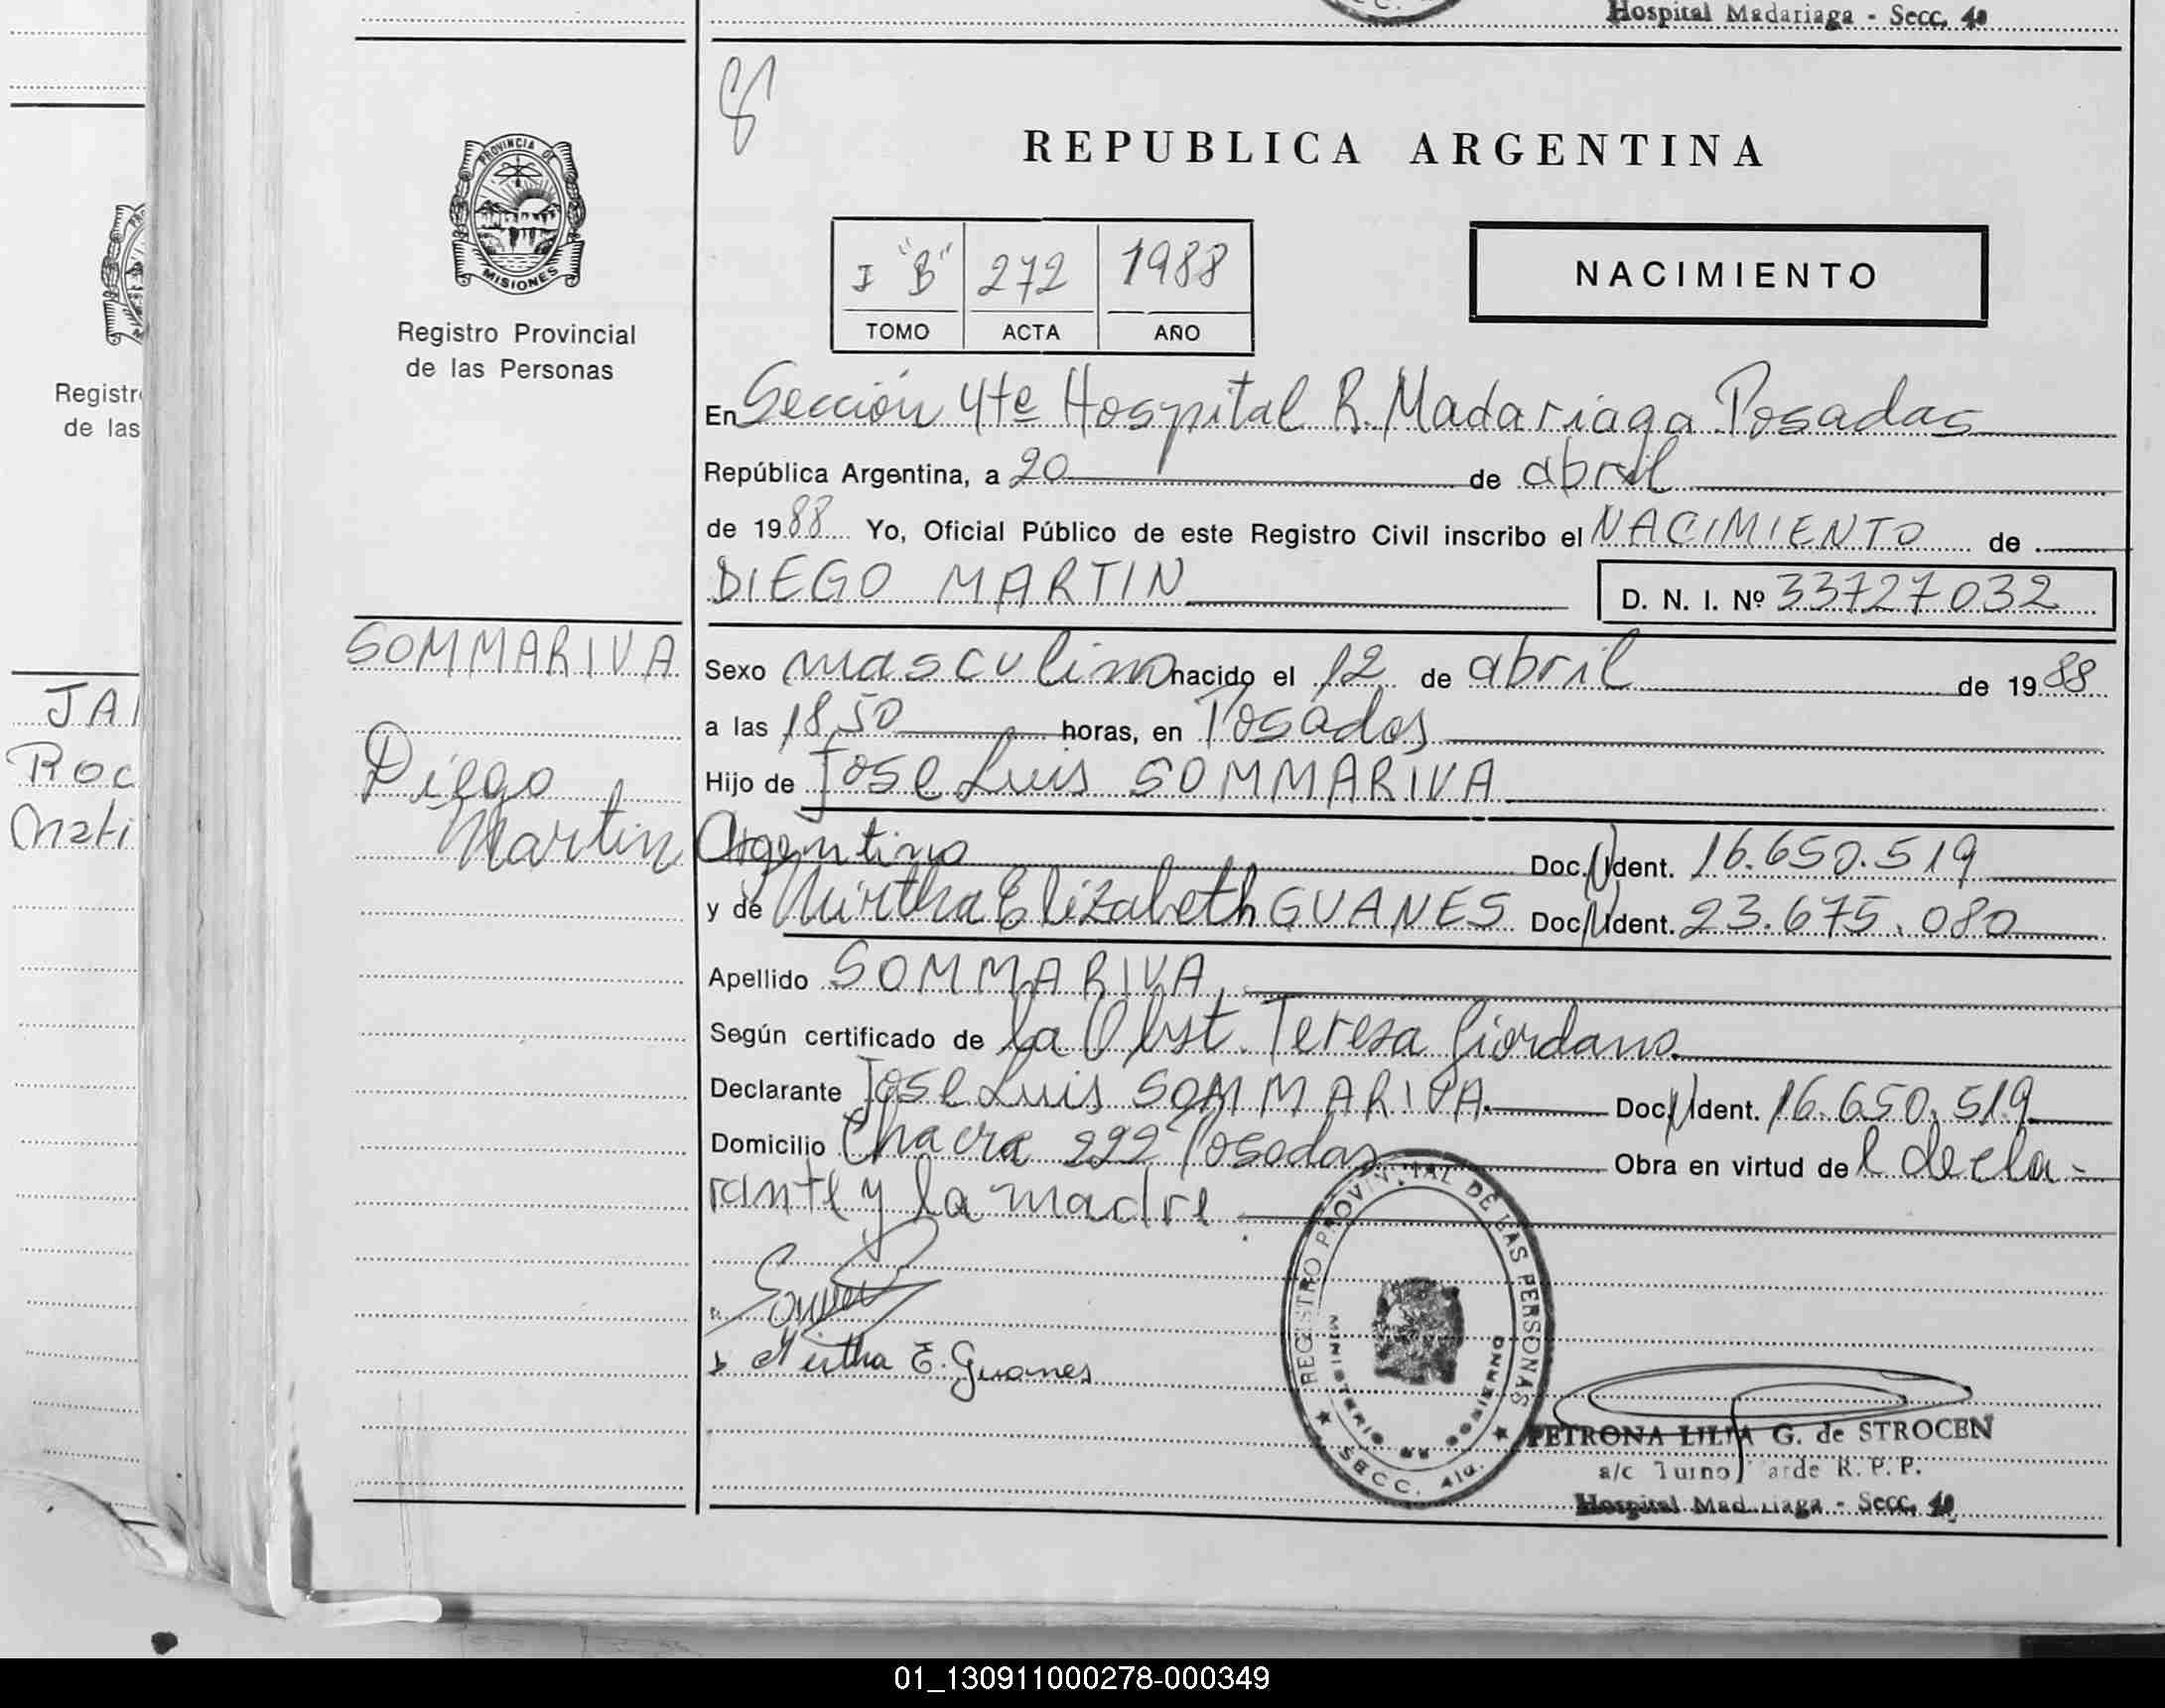 Hospital Madariaga - Secc. 4a
8
PROVINCIA DE
MISIONES
Registro Provincial
de las Personas
REPUBLICA ARGENTINA
I "B" 272 1988
TOMO ACTA AÑO
NACIMIENTO
En Sección 4te Hospital R. Madariaga Posadas
República Argentina, a 20 de abril
de 1988 Yo, Oficial Público de este Registro Civil inscribo el NACIMIENTO de
DIEGO MARTIN D. N. I. Nº 33727032
SOMMARIVA
Diego
Martin
Sexo masculino nacido el 12 de abril de 1988
a las 18,50 horas, en Posadas
Hijo de Jose Luis SOMMARIVA
Argentino Doc. N Ident. 16.650.519
y de Mirtha Elizabeth GUANES Doc. N Ident. 23.675.080
Apellido SOMMARIVA
Según certificado de la Obst. Teresa Giordano
Declarante Jose Luis SOMMARIVA Doc. N Ident. 16.650.519
Domicilio Chacra 222 Posadas Obra en virtud de l decla-
rante y la madre
Mirtha E. Guanes
REGISTRO PROVINCIAL DE LAS PERSONAS
MINISTERIO DE GOBIERNO
SECC. 4ta.
PETRONA LILIA G. de STROCEN
a/c Turno Tarde R. P. P.
Hospital Madariaga - Secc. 4a
Registr
de las
JA
Roc
Mati
01_130911000278-000349